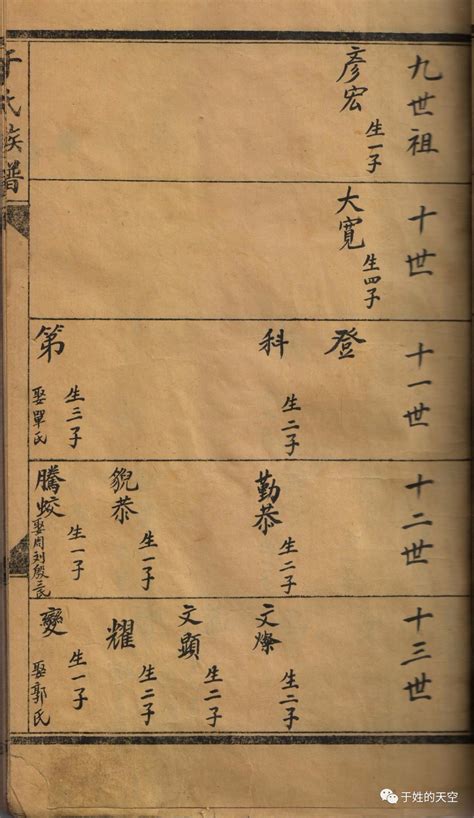 于氏族譜
九世祖
彥宏
生一子
十世
大寬
生四子
十一世
登
科
生二子
第
生三子
娶單氏
十二世
勤恭
生二子
貌恭
生一子
騰蛟
生一子
娶周刘殷三氏
十三世
文燦
生二子
文顯
生二子
耀
生二子
變
生一子
娶郭氏
于姓的天空